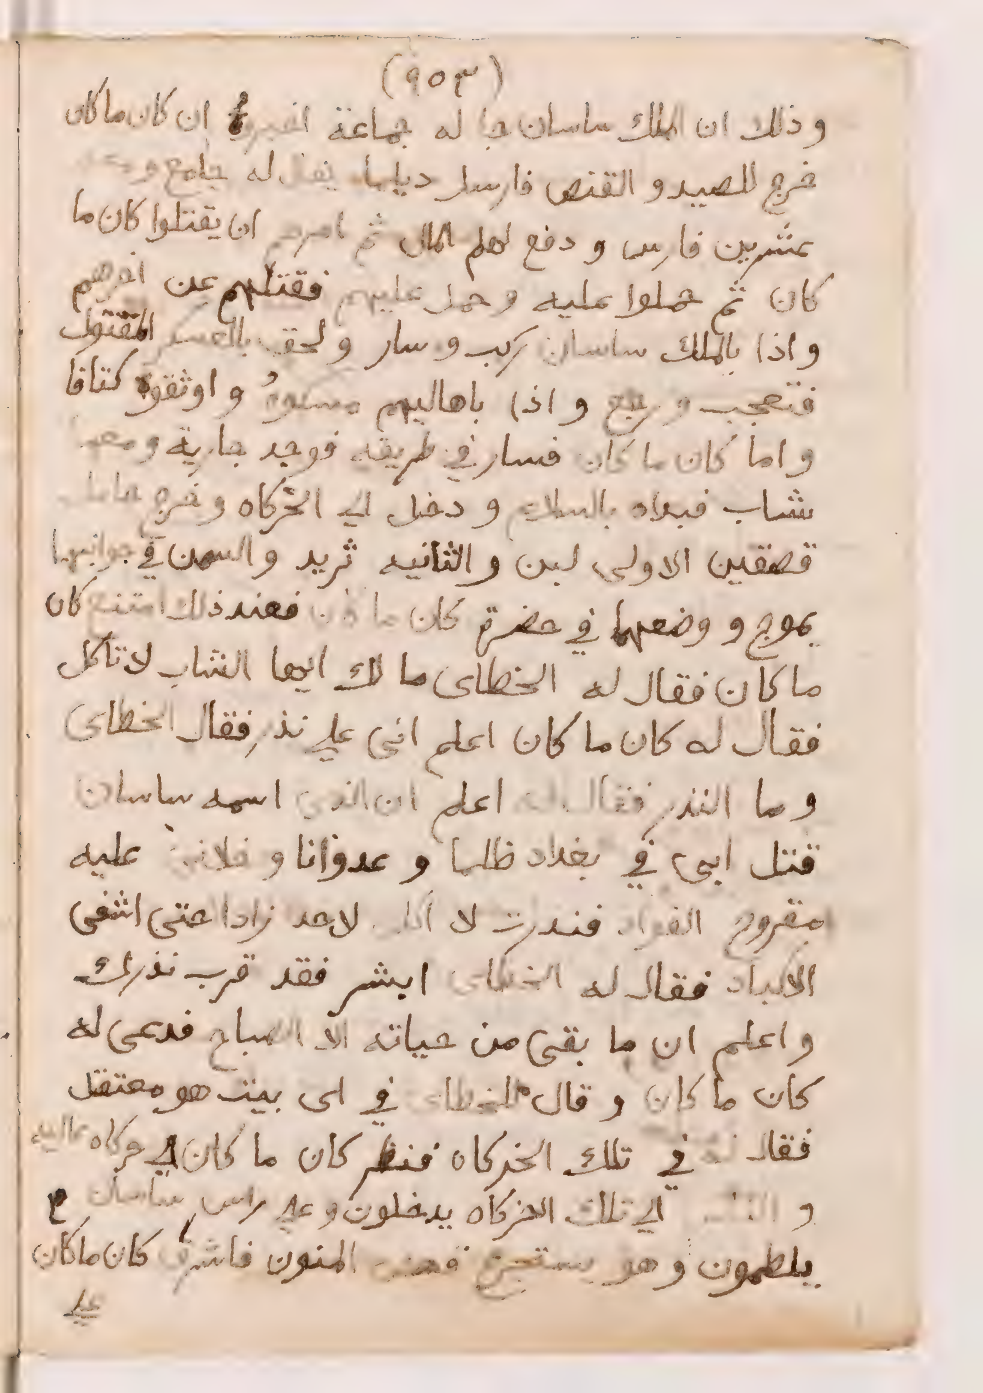 (٩٥٣)
و ذلك ان الملك ساسان جا له جماعة اخبروه ان كان ما كان
خرج للصيد و القنص فارسل يقال له جامع و معه
عشرين فارس و دفع لهم المال ثم امرهم ان يقتلوا كان ما
كان ثم حملوا عليه و حمل عليهم فقتلهم عن اخرهم
و اذا بالملك ساسان ركب و سار و لحق بالعسكر المقتول
فتعجب و رجع و اذا باهاليهم مسكوه و اوثقوه كتافا
و اما كان ما كان فسار في طريقه فوجد جارية و معها
شاب فبداه بالسلام و دخل الي الخركاه و خرج حامل
قصقتين الاولى لبن و الثانيه ثريد و السمن في جوانبها
يموج و وضعهما في حضرة كان ما كان فعند ذلك امتنع كان
ما كان فقال له الخطاى ما لك ايها الشاب لا تاكل
فقال له كان ما كان اعلم انى علي نذر فقال الخطاى
و ما النذر فقال له اعلم ان الذى اسمه ساسان
قتل ابى في بغداد ظلما و عدوانا و خلانى عليه
مقروح الفواد فندرت لا آكل لاحد زادا حتى اشفى
الاكباد فقال له الخطاى ابشر فقد قرب نذرك
و اعلم ان ما بقى من حياته الا الصباح فدعى له
كان ما كان و قال للخطاى في اى بيت هو معتقل
فقال له في تلك الخركاه فنظر كان ما كان الي خركاه عاليه
و الناس الي تلك الخركاه يدخلون و علي راس ساسان
يلطمون و هو يستجرع غصص المنون فاشرف كان ما كان
علي